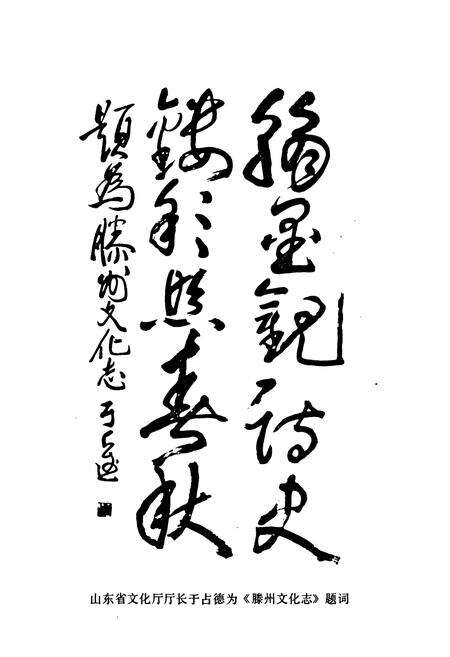 墨觀詩史
鏤彩照春秋
題為滕州文化志 于占德
山东省文化厅厅长于占德为《滕州文化志》题词